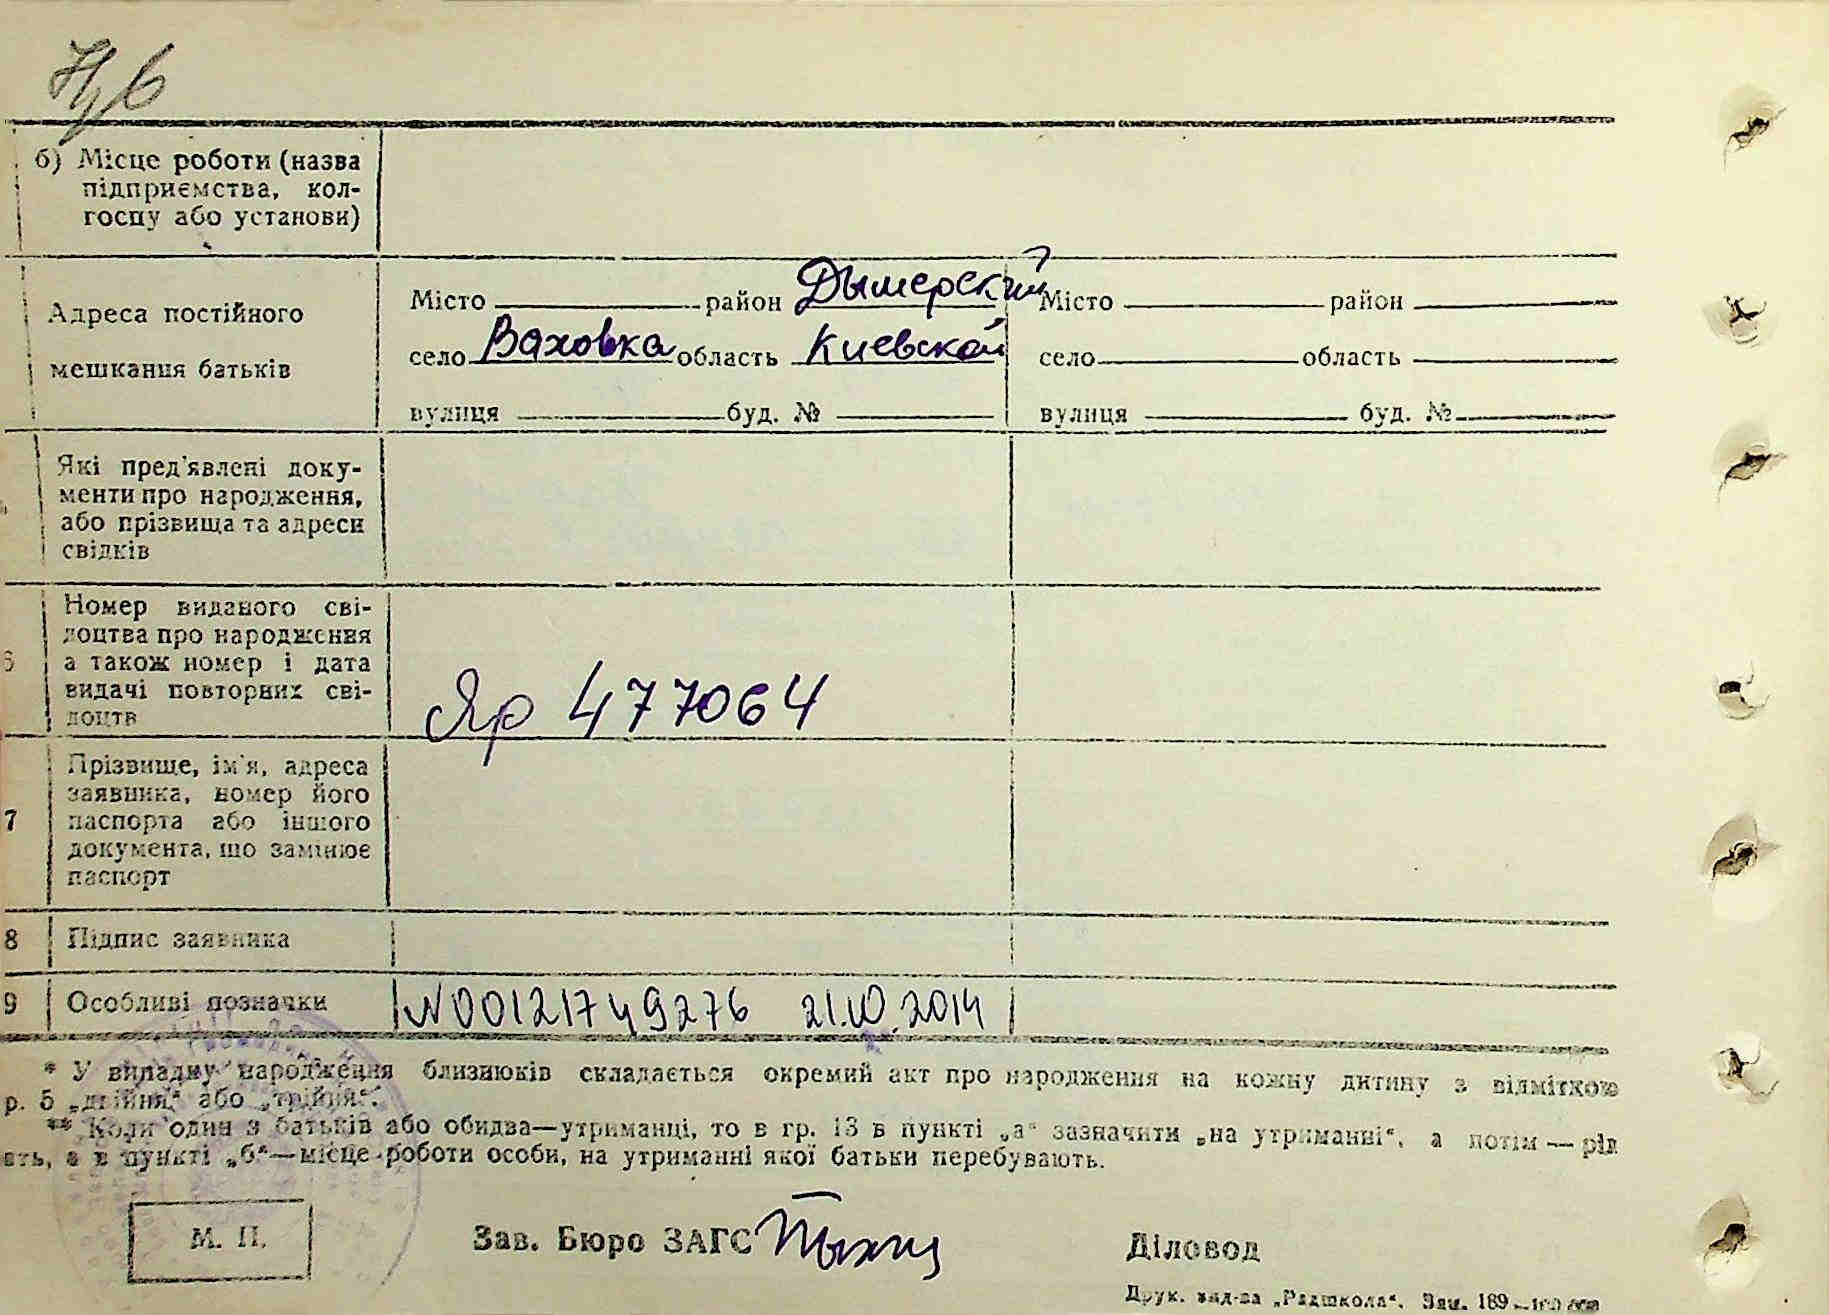 б) Місце роботи (назва
підприємства, кол-
госпу або установи)
Адреса постійного
мешкання батьків
Місто район Дымерский Місто район
село Ваховка область Киевской село область
вулиця буд. № вулиця буд. №
Які пред'явлені доку-
менти про народження,
або прізвища та адреси
свідків
6 Номер виданого сві-
доцтва про народження
а також номер і дата
видачі повторних сві-
доцтв
Яр 477064
7 Прізвище, ім'я, адреса
заявника, номер його
паспорта або іншого
документа, що замінює
паспорт
8 Підпис заявника
9 Особливі позначки N00121749276 21.10.2014
* У випадку народження близнюків складається окремий акт про народження на кожну дитину з відміткою
р. 5 „двійня“ або „трійня“.
** Коли один з батьків або обидва—утриманці, то в гр. 13 в пункті „а“ зазначити „на утриманні“, а потім — рід
ять, а в пункті „б“—місце роботи особи, на утриманні якої батьки перебувають.
М. П. Зав. Бюро ЗАГС Діловод
Друк. вид-ва „Радшкола“. Зам. 189